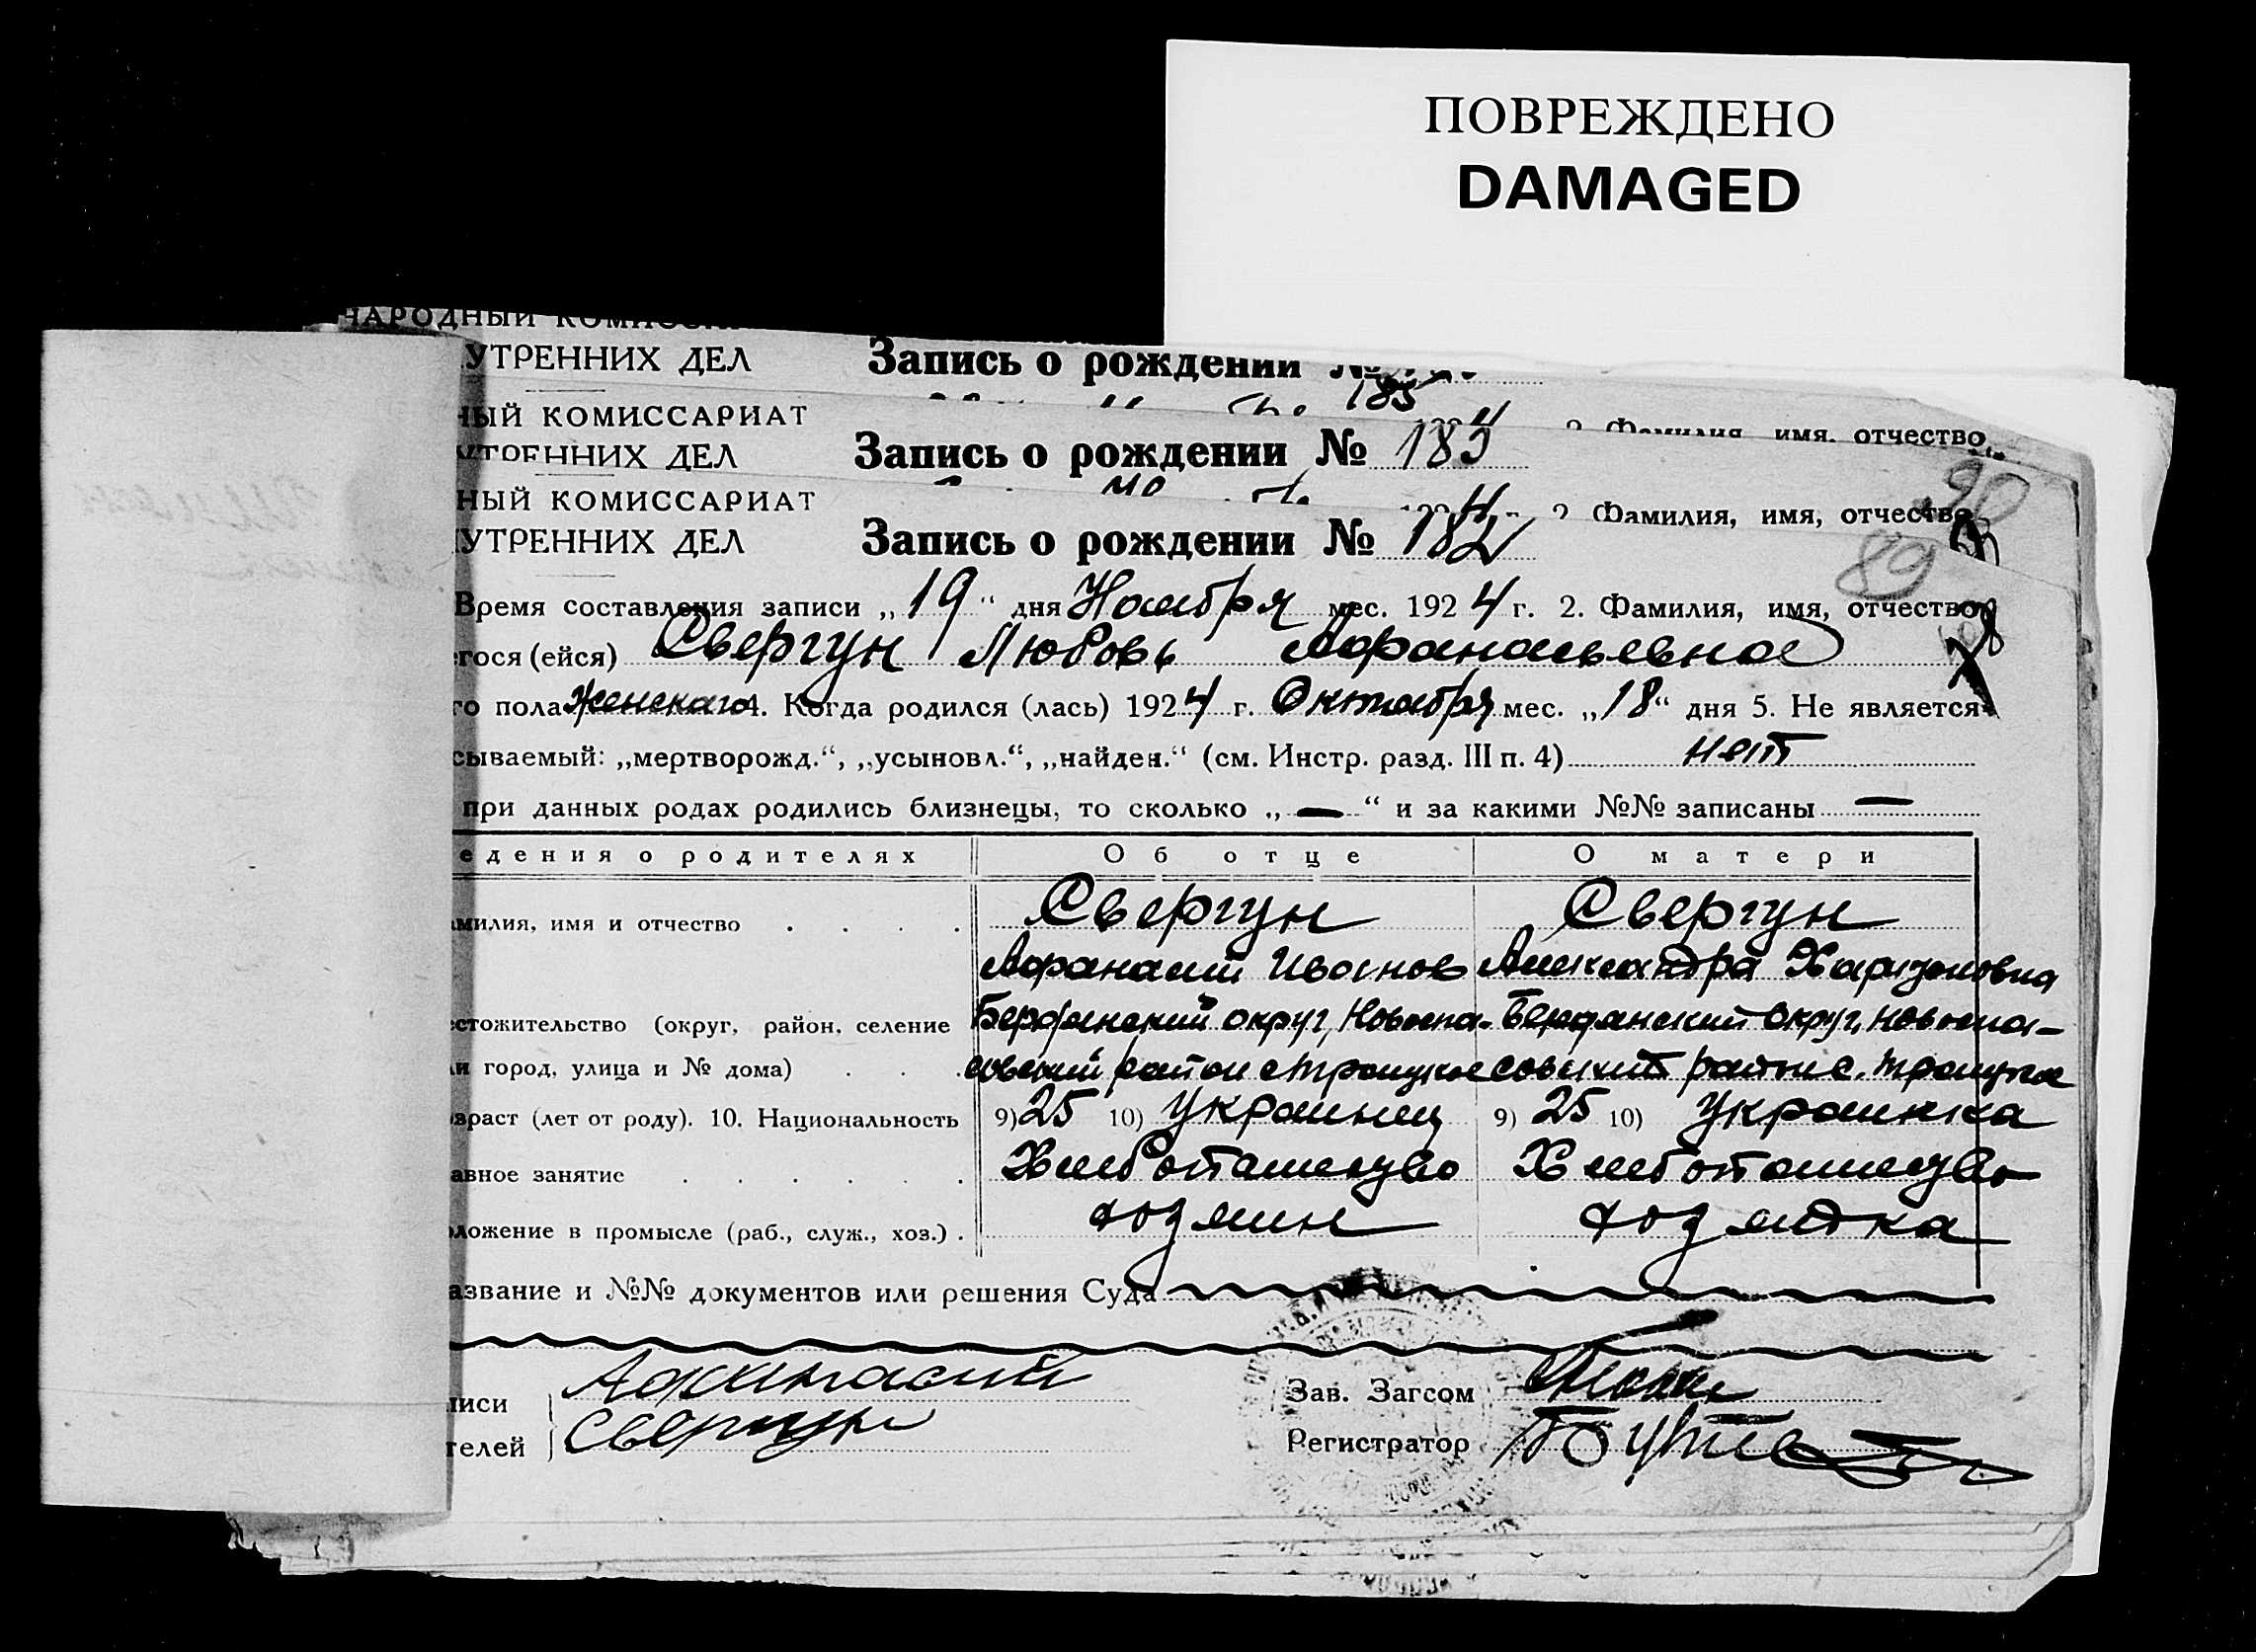 ПОВРЕЖДЕНО
DAMAGED
НАРОДНЫЙ
УТРЕННИХ ДЕЛ Запись о рождении №
185
НЫЙ КОМИССАРИАТ 4 2. Фамилия, имя, отчество
УТРЕННИХ ДЕЛ Запись о рождении № 183
90
НЫЙ КОМИССАРИАТ 4 2. Фамилия, имя, отчество
УТРЕННИХ ДЕЛ Запись о рождении № 182
89
Время составления записи „19“ дня Ноября мес. 1924 г. 2. Фамилия, имя, отчество
гося (ейся) Свергун Любовь Афанасьевна
го пола Женскаго 4. Когда родился (лась) 1924 г. Октября мес. „18“ дня 5. Не является
сываемый: „мертворожд.“, „усыновл.“, „найден.“ (см. Инстр. разд. III п. 4) нет
при данных родах родились близнецы, то сколько „—“ и за какими №№ записаны —
едения о родителях Об отце О матери
милия, имя и отчество . . . . Свергун Свергун
Афанасий Иванов Александра Харитоновна
стожительство (округ, район, селение Бердянский округ, Новоспа- Бердянский округ, Новоспа-
и город, улица и № дома) . . . совский район с Троицкое совский район с. Троицкое
зраст (лет от роду). 10. Национальность 9) 25 10) Украинец 9) 25 10) Украинка
авное занятие . . . . . . Хлебопашество Хлебопашество
ложение в промысле (раб., служ., хоз.) . хозяин хозяйка
азвание и №№ документов или решения Суда
писи Афанасий Зав. Загсом
телей Свергун Регистратор